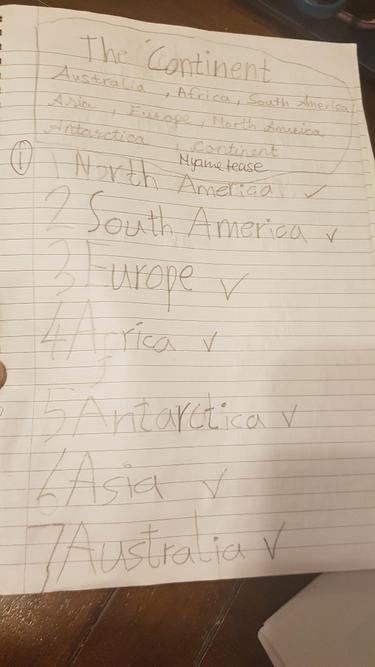 The Continent
Australia , Africa, South America,
Asia , Europe, North America
Antarctica , Continent
Myametease
① 1 North America ✓
2 South America ✓
3 Europe ✓
4 Africa ✓
5
5 Antarctica ✓
6 Asia ✓
7 Australia ✓